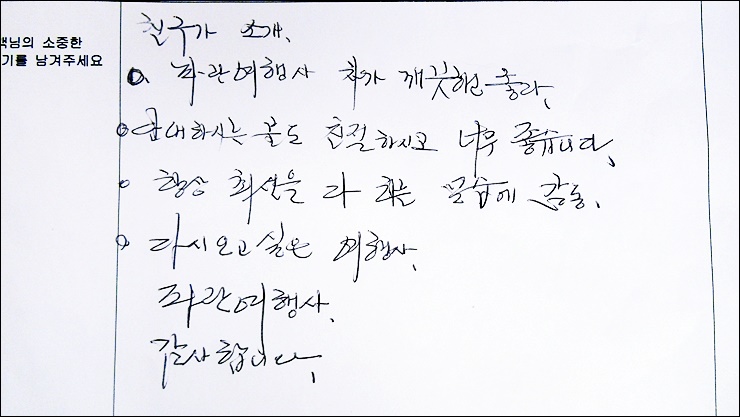 객님의 소중한
기를 남겨주세요
친구가 소개.
파란여행사 차가 깨끗해 좋다.
응대하시는 분도 친절하시고 너무 좋습니다.
항상 최선을 다 하는 모습에 감동.
다시 오고 싶은 여행사.
파란여행사.
감사합니다.